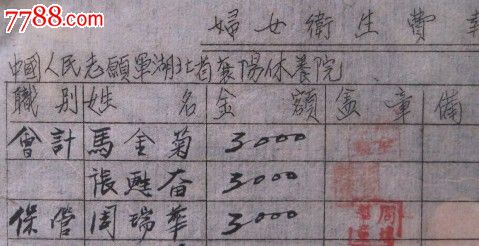 7788.com
婦女衛生費
中國人民志願軍湖北省襄陽休養院
職別 姓名 金額 蓋章 備
會計 馬金菊 3000
張甦奋 3000
保管 周瑞華 3000